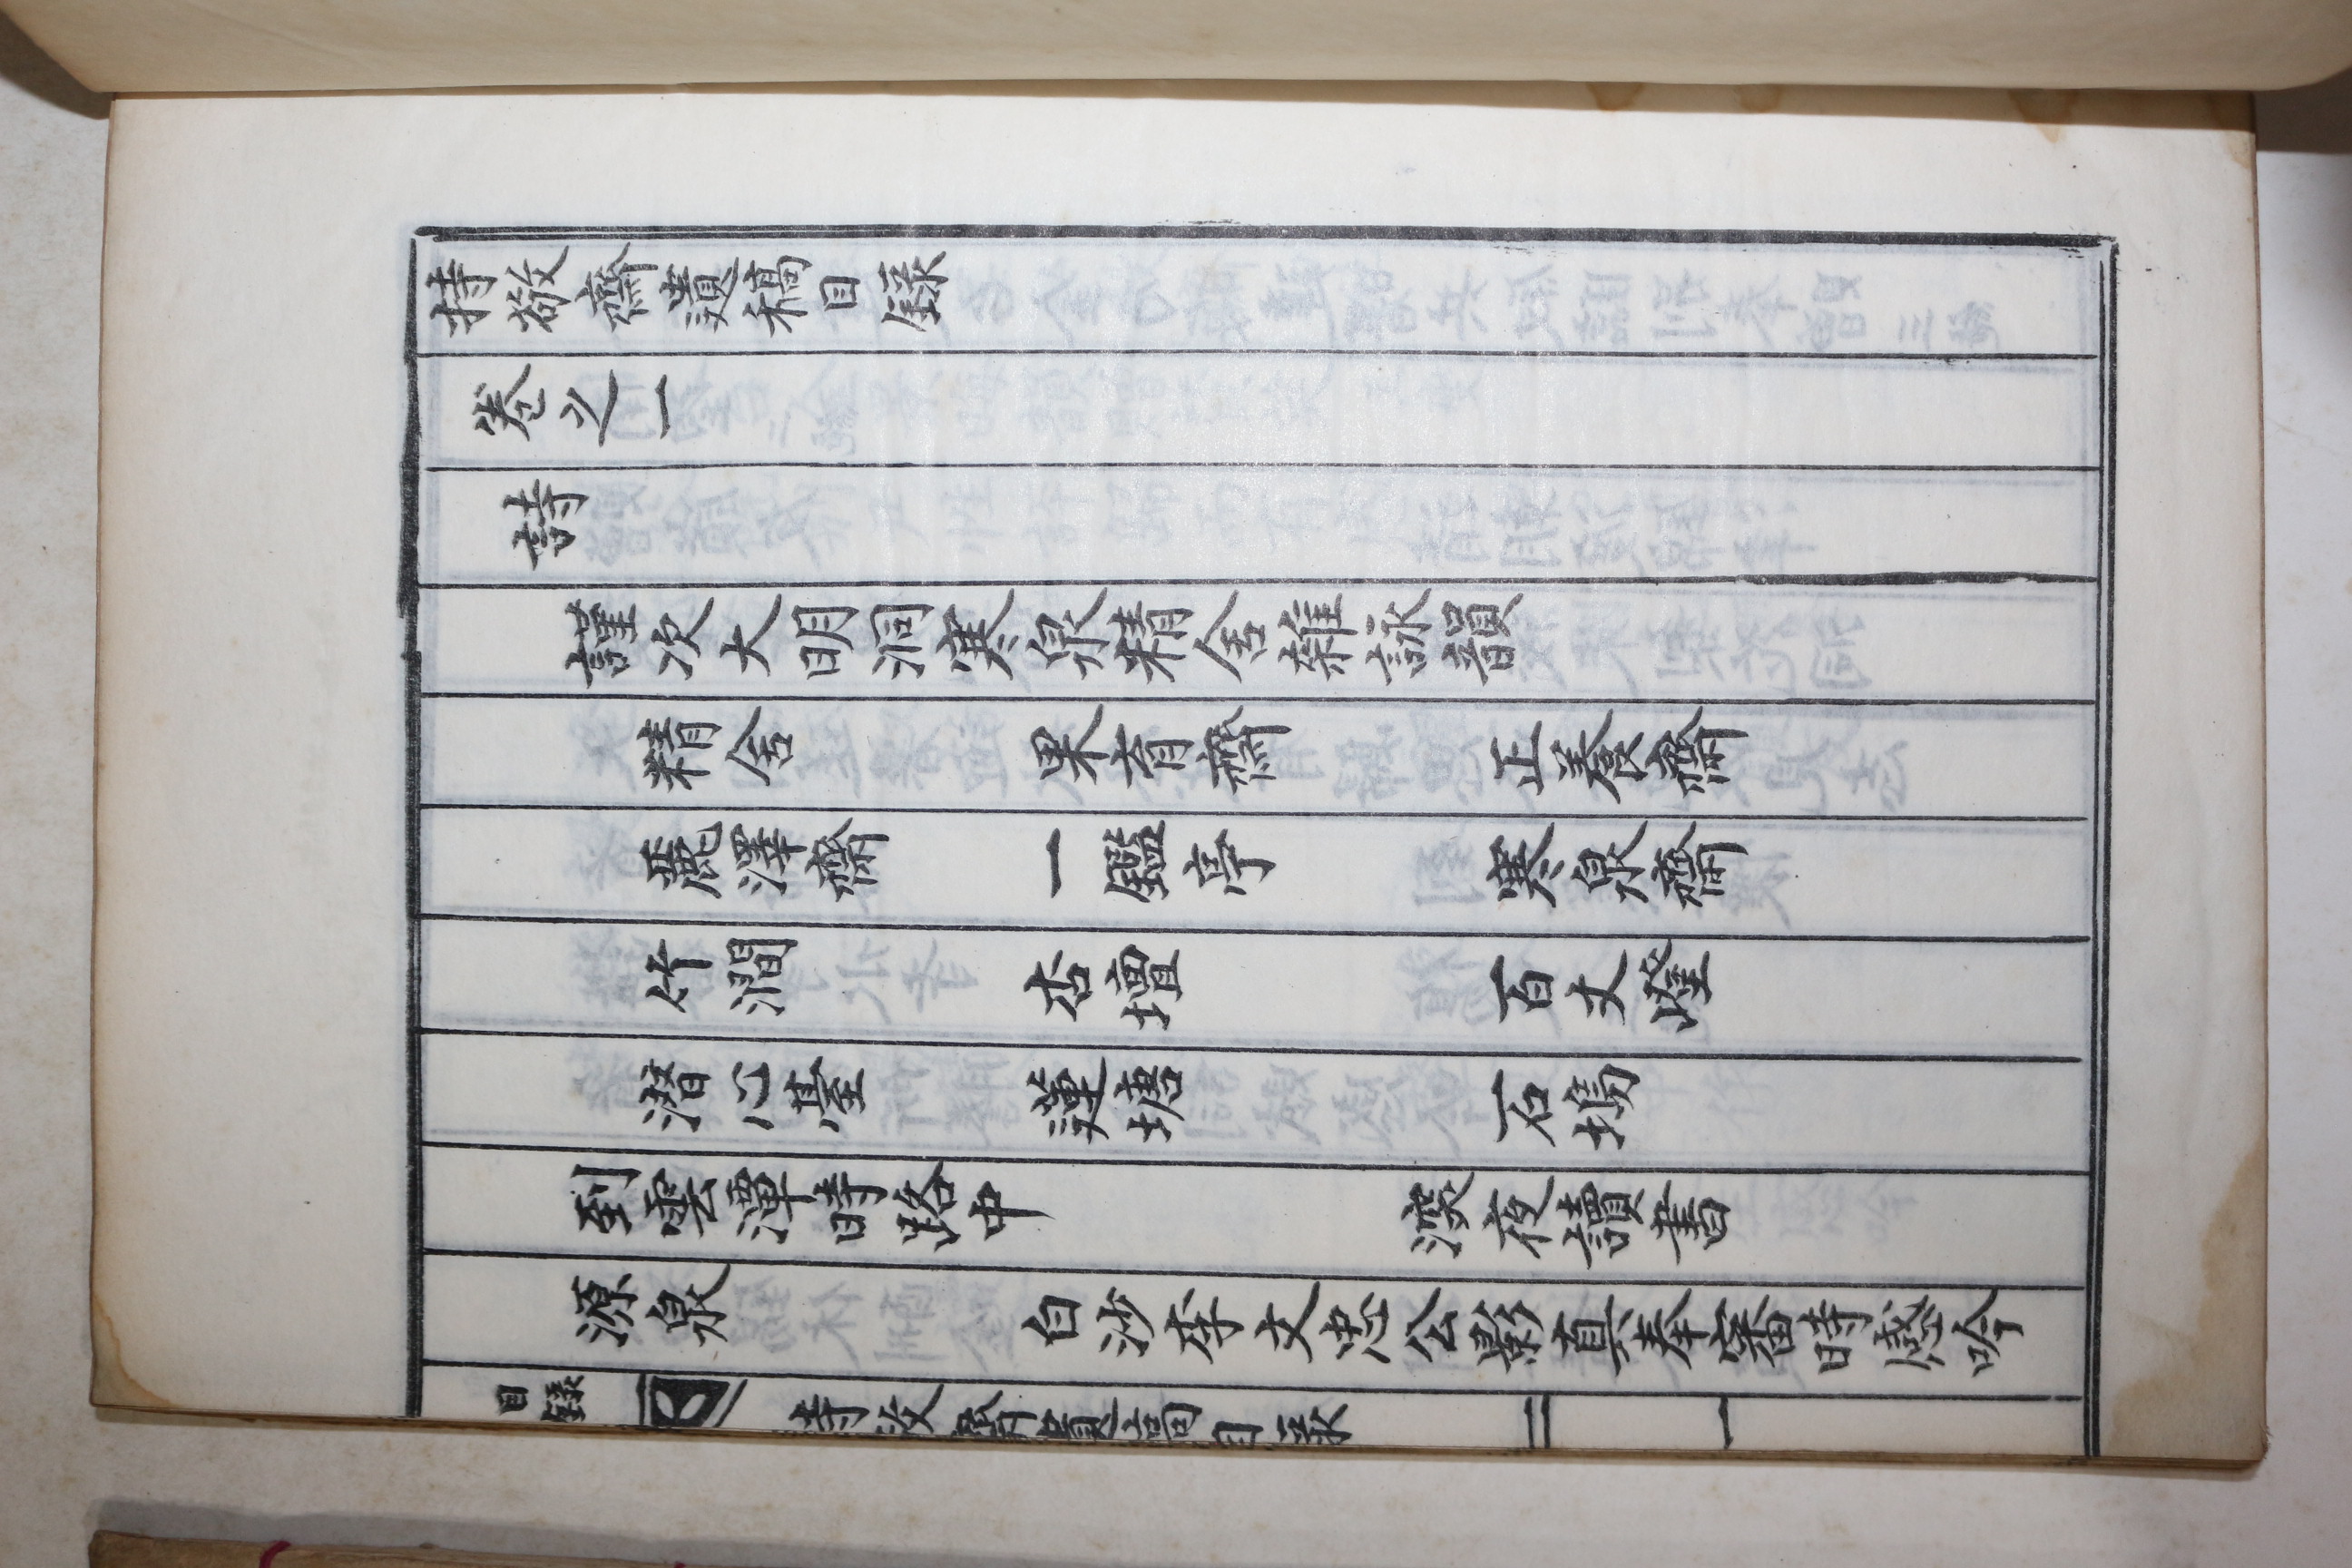 持敬齋遺稿目錄
卷之一
詩
謹次大明洞寒泉精舍雜詠韻
精舍 果育齋 正養齋
麗澤齋 一鑑亭 寒泉齋
竹澗 杏壇 百丈嶝
潛心臺 蓮塘 石塢
到雲潭時路中 深夜讀書
源泉 白沙李文忠公影真奉審時感吟
目錄 持敬齋遺稿目錄 一